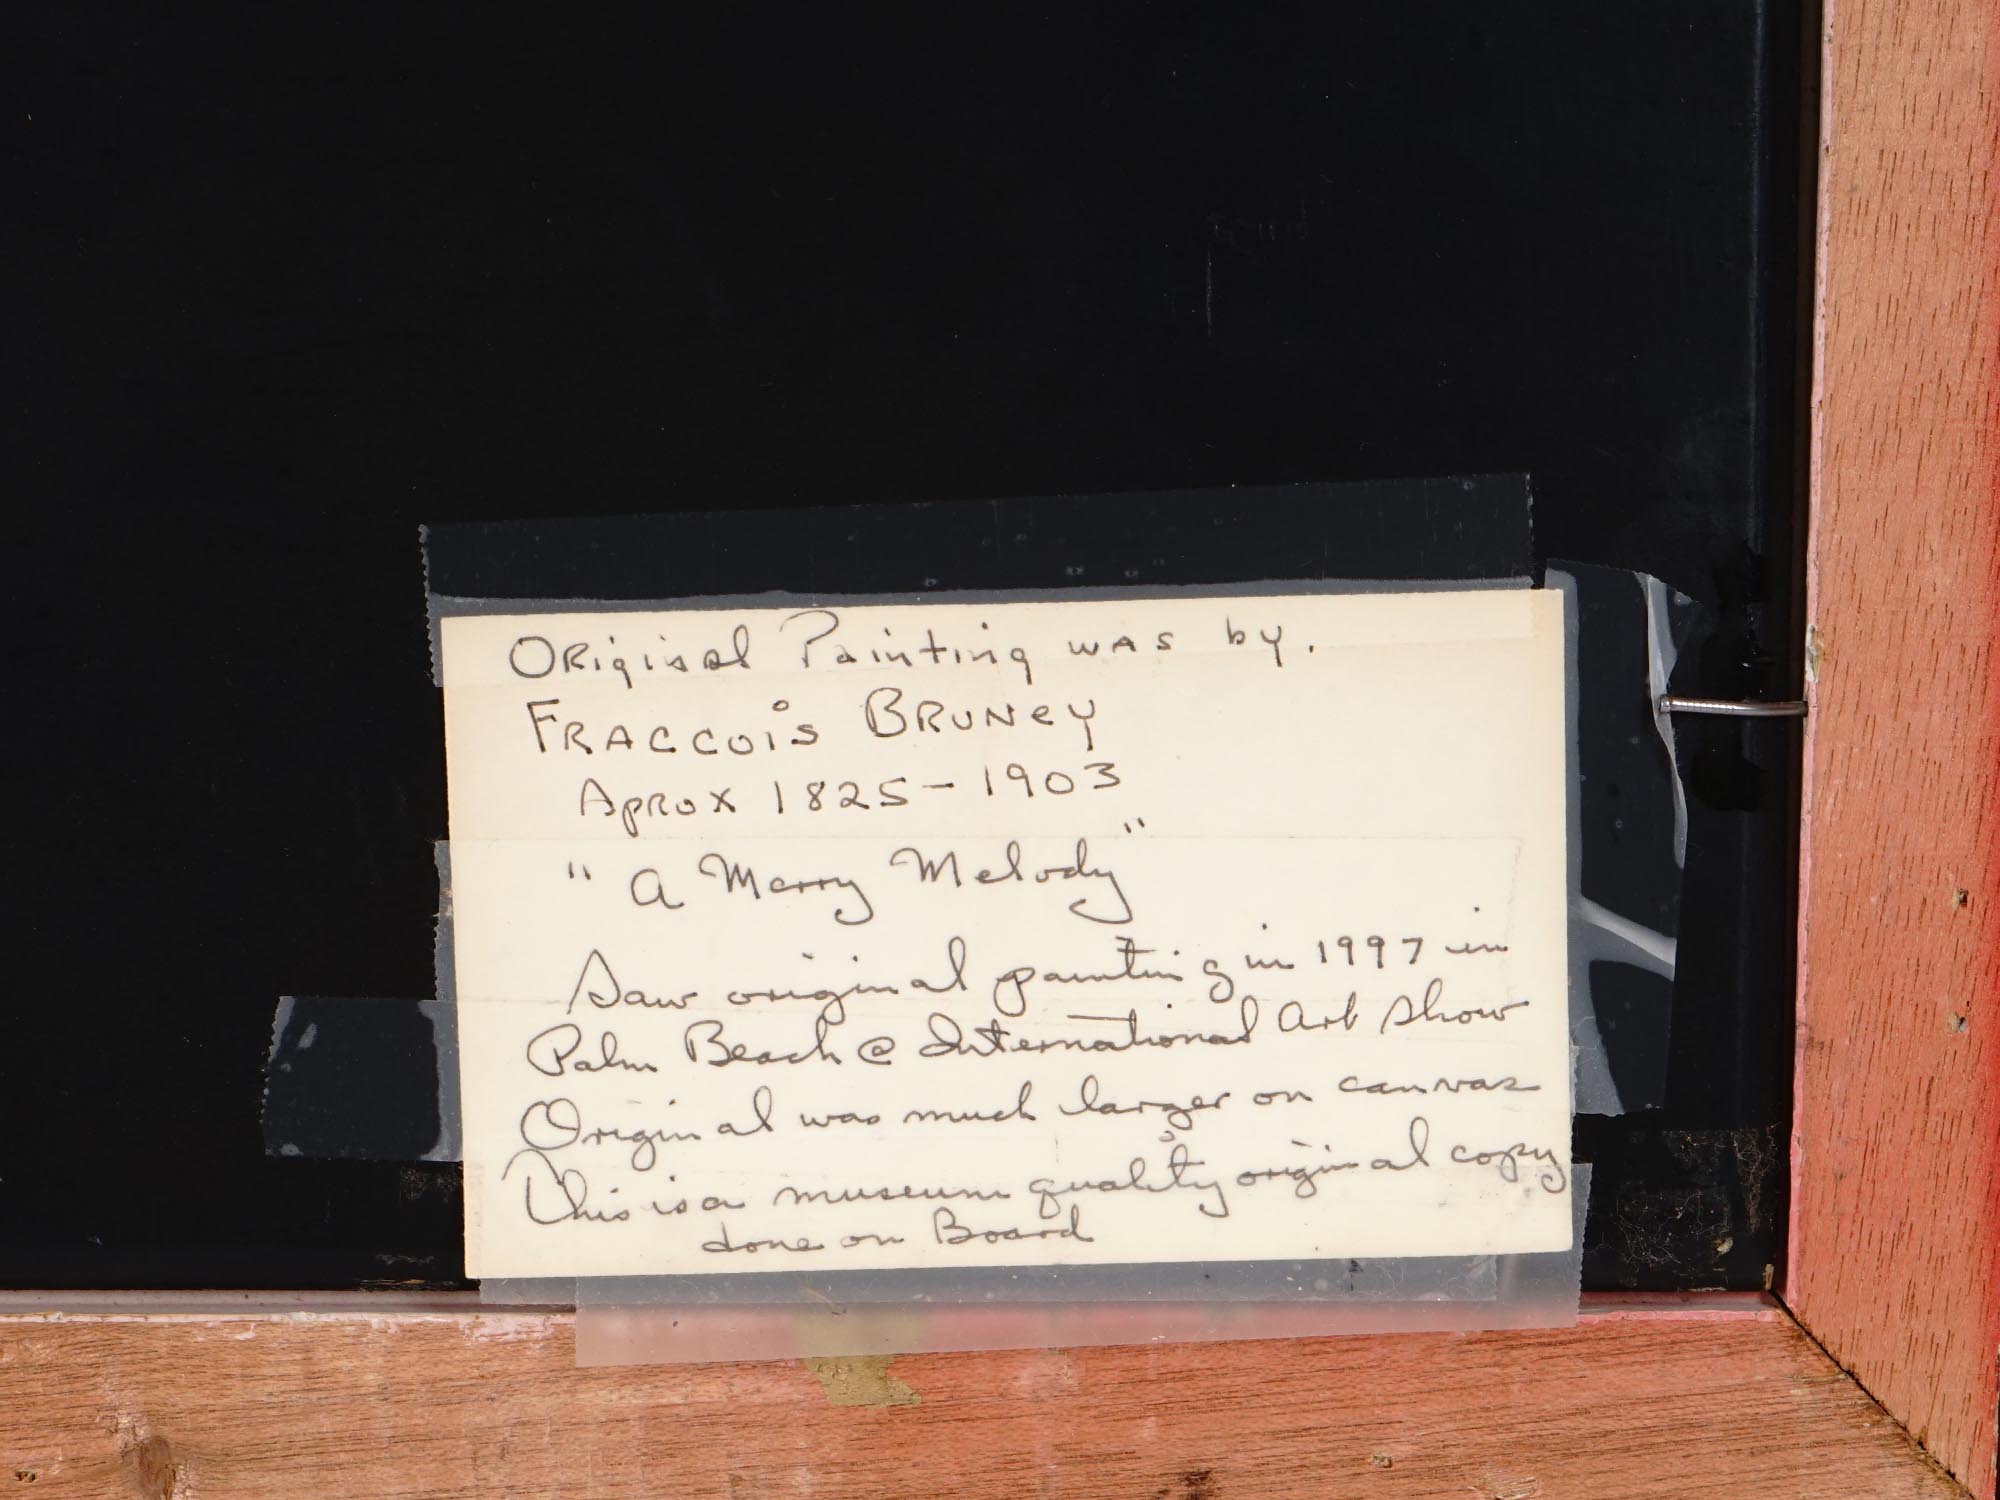 Original Painting was by.
FRACCOiS BRUNEY
Aprox 1825 - 1903
" A Merry Melody "
Saw original painting in 1997 in
Palm Beach @ International Art Show
Original was much larger on canvas
This is a museum quality original copy
done on Board